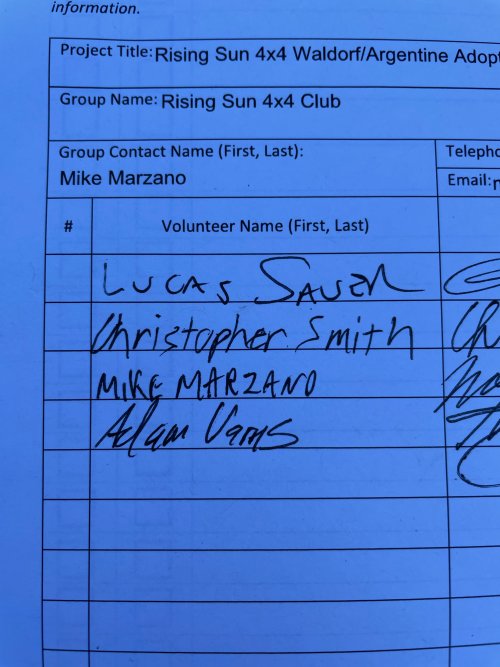 information.
Project Title: Rising Sun 4x4 Waldorf/Argentine Adopt
Group Name: Rising Sun 4x4 Club
Group Contact Name (First, Last): Telepho
Mike Marzano Email:
# Volunteer Name (First, Last)
LUCAS SAUER
Christopher Smith Ch
MIKE MARZANO
Adam